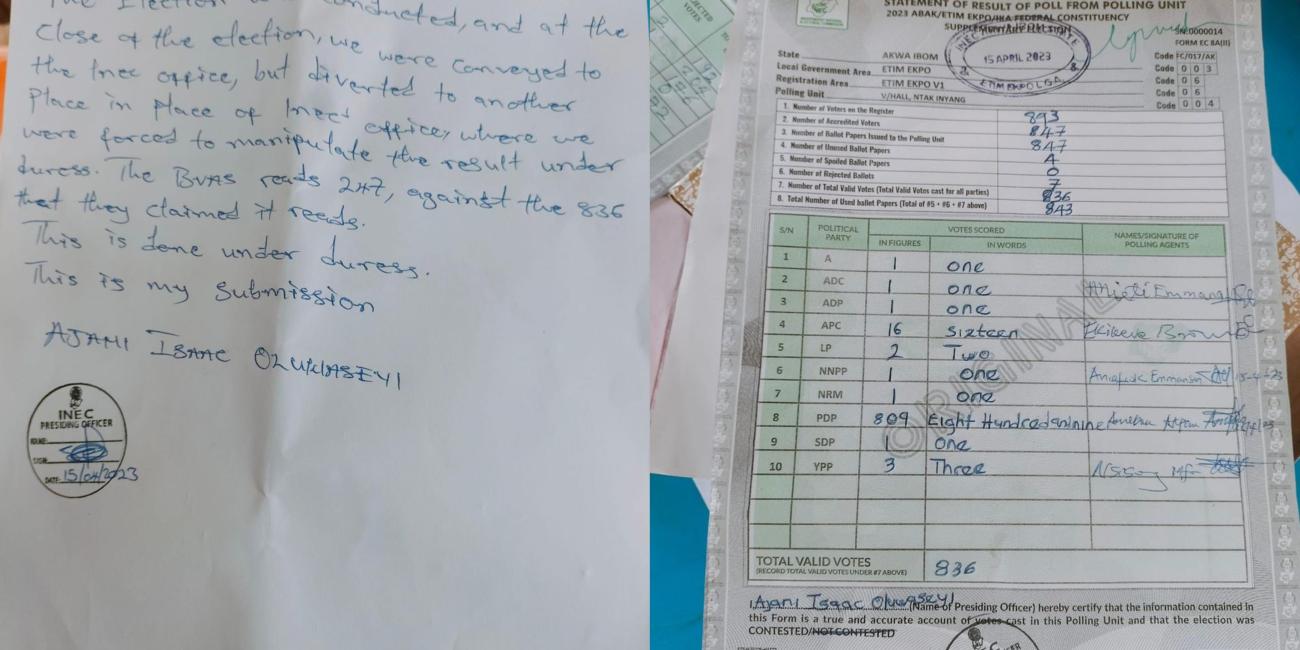 The Election was conducted, and at the
close of the election, we were conveyed to
the Inec office, but diverted to another
place in place of Inec office, where we
were forced to manipulate the result under
duress. The BVAS reads 247, against the 836
that they claimed it reads.
This is done under duress.
This is my submission
AJANI ISAAC OLUWASEYI
INEC
PRESIDING OFFICER
NAME:
SIGN:
DATE: 15/04/2023
STATEMENT OF RESULT OF POLL FROM POLLING UNIT
2023 ABAK/ETIM EKPO/IKA FEDERAL CONSTITUENCY
SUPPLEMENTARY ELECTION
S/N:0000014
FORM EC 8A(II)
INEC
15 APRIL 2023
ETIM EKPO LGA
State AKWA IBOM Code FC/017/AK
Local Government Area ETIM EKPO Code 0 0 3
Registration Area ETIM EKPO V1 Code 0 6
Polling Unit V/HALL, NTAK INYANG Code 0 6
Code 0 0 4
1. Number of Voters on the Register 893
2. Number of Accredited Voters 847
3. Number of Ballot Papers Issued to the Polling Unit 847
4. Number of Unused Ballot Papers 4
5. Number of Spoiled Ballot Papers 0
6. Number of Rejected Ballots 7
7. Number of Total Valid Votes (Total Valid Votes cast for all parties) 836
8. Total Number of Used ballot Papers (Total of #5 + #6 + #7 above) 843
S/N POLITICAL PARTY VOTES SCORED NAMES/SIGNATURE OF POLLING AGENTS
IN FIGURES IN WORDS
1 A 1 one
2 ADC 1 one
3 ADP 1 one
4 APC 16 Sixteen
5 LP 2 Two
6 NNPP 1 one
7 NRM 1 one
8 PDP 809 Eight Hundredaninine
9 SDP 1 one
10 YPP 3 Three
ORIGINAL
TOTAL VALID VOTES 836
(RECORD TOTAL VALID VOTES UNDER #7 ABOVE)
I, Ajani Isaac Oluwaseyi (Name of Presiding Officer) hereby certify that the information contained in
this Form is a true and accurate account of votes cast in this Polling Unit and that the election was
CONTESTED/NOT CONTESTED